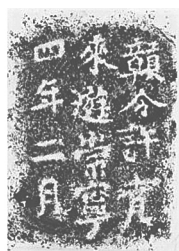 贑令許
來遊崇寧
四年二月